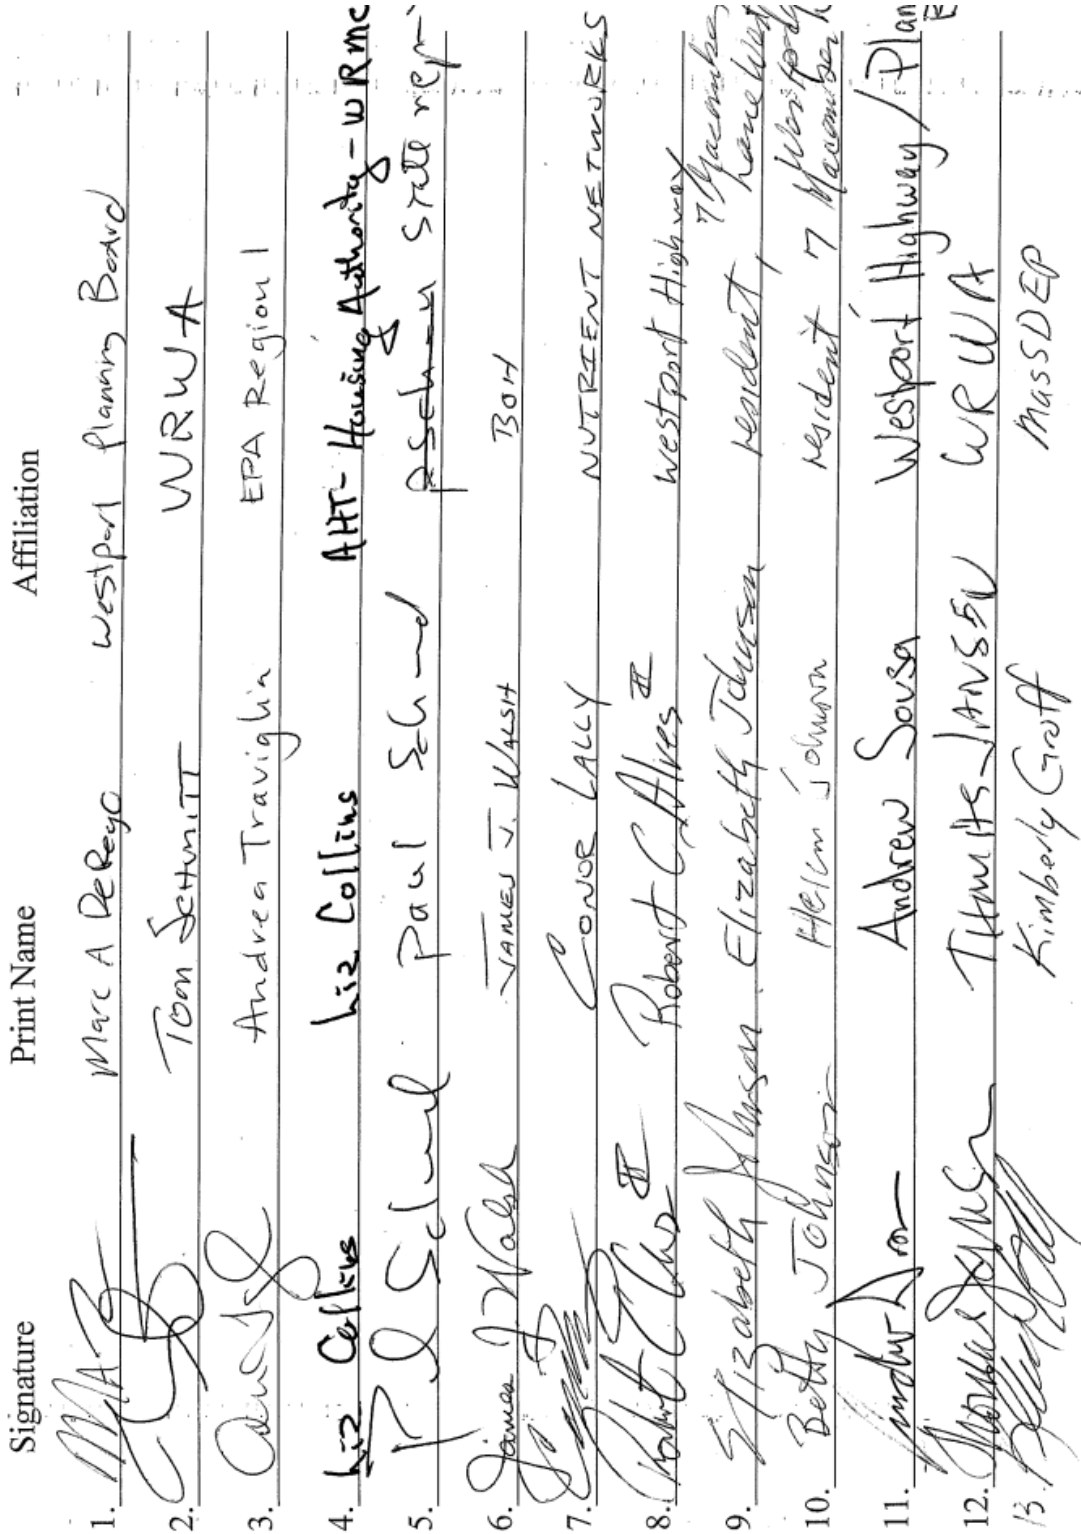 Signature Print Name Affiliation
1. Marc A De Rego Westport Planning Board
2. Tom SCHMITT WRWA
3. Andrea Traviglia EPA Region 1
4. Liz Collins Liz Collins AHT- Housing Authority - WRMC
5. Paul Schmid State rep
6. James J. Walsh JAMES J. WALSH BOH
7. CONOR LALLY NUTRIENT NETWORKS
8. Robert C. Alves II Westport Highway
9. Elizabeth Johnson Elizabeth Johnson resident, 7 Macomber Lane
10. Betty Johnson Johnson resident 7 Macomber
11. Andrew Sousa Westport Highway / Plan
12. JANSEN WRWA
13. Kimberly Groff MassDEP